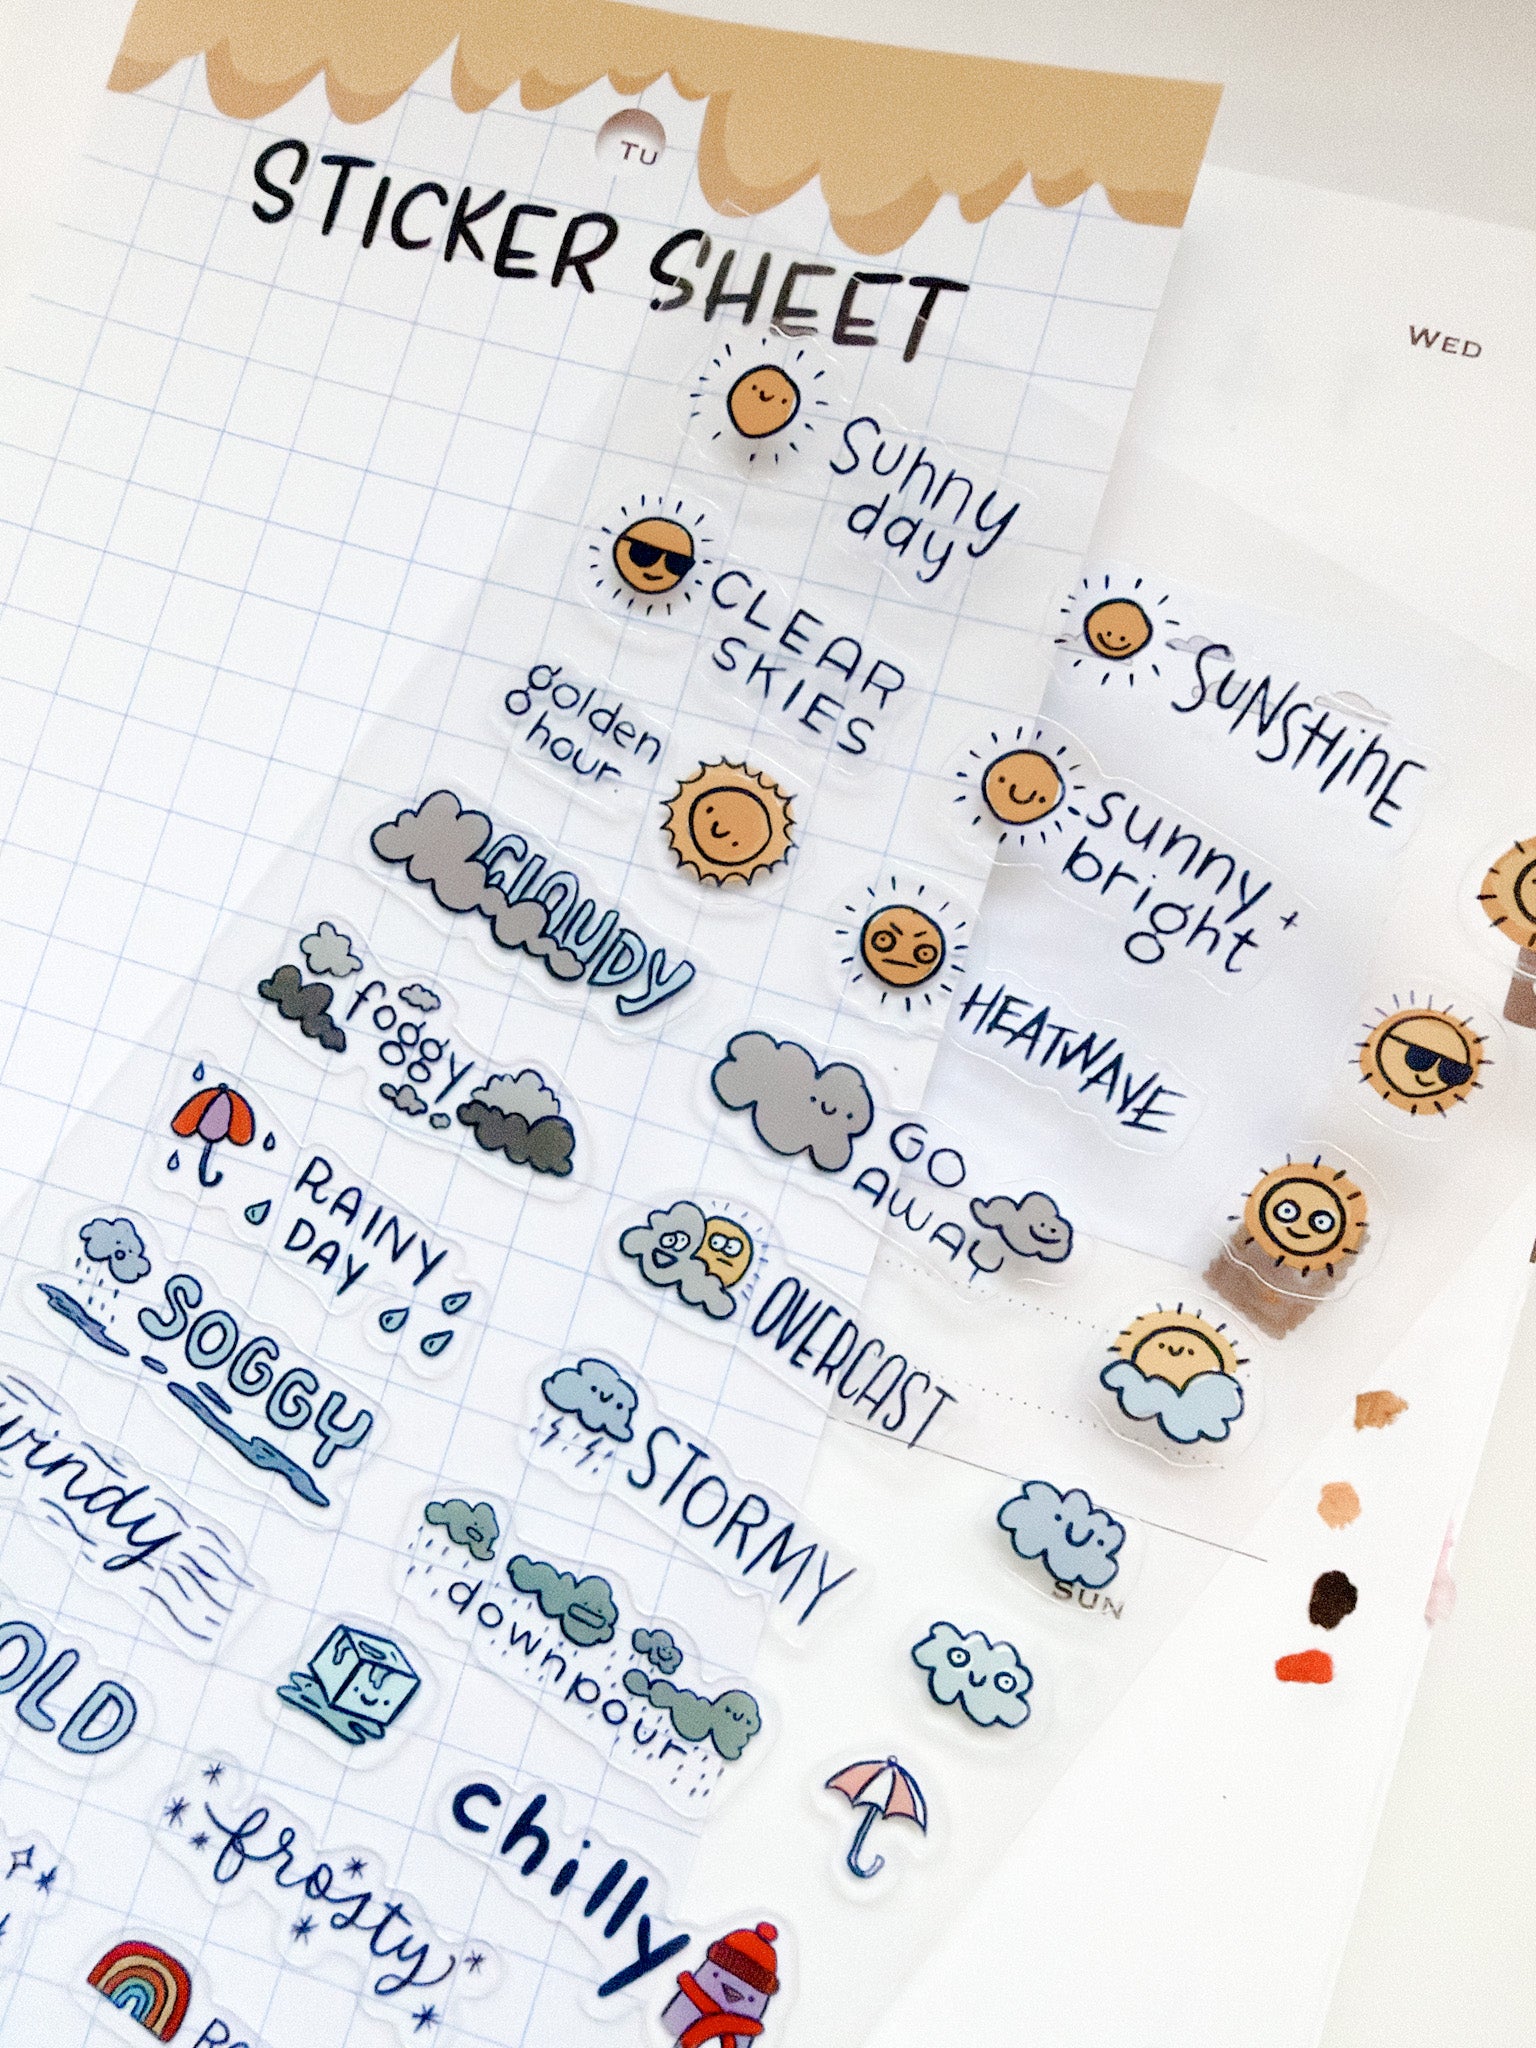 TU
STICKER SHEET
WED
Sunny
day
CLEAR
SKIES
SUNSHINE
golden
hour
sunny +
bright
CLOUDY
HEATWAVE
foggy
GO
AWAY
RAINY
DAY
OVERCAST
SOGGY
STORMY
windy
SUN
downpour
OLD
chilly
frosty